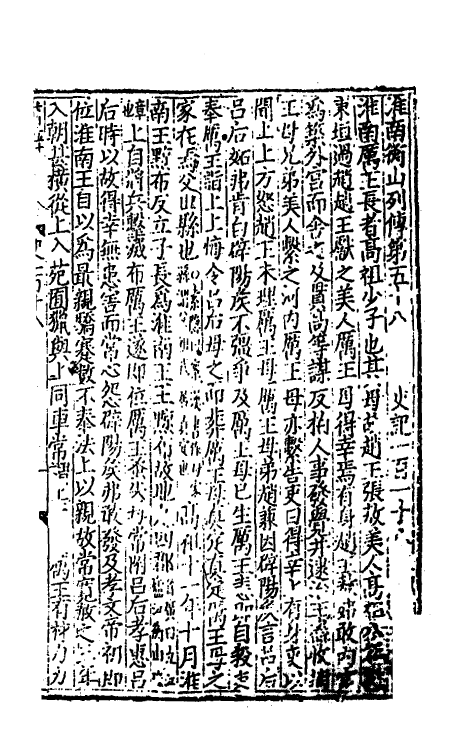 淮南衡山列傳第五十八 史記一百一十八
淮南厲王長者高祖少子也其母故趙王張敖美人高祖八年
東垣過趙趙王獻之美人厲王母得幸焉有身趙王敖弗敢內宮
爲築外宮而舍之及貫高等謀反柏人事發覺并逮治王盡收捕
王母兄弟美人繫之河內厲王母亦繫告吏曰得幸上有身吏以
聞上上方怒趙王未理厲王母厲王母弟趙兼因辟陽侯言呂后
呂后妬弗肯白辟陽侯不彊爭及厲王母已生厲王恚即自殺吏
奉厲王詣上上悔令呂后母之而葬厲王母真定真定厲王母之
家在焉父世縣也 高祖十一年十月淮
南王黥布反立子長爲淮南王王黥布故地凡四郡
上自將兵擊滅布厲王遂即位厲王蚤失母常附呂后孝惠呂
后時以故得幸無患害而常心怨辟陽侯弗敢發及孝文帝初即
位淮南王自以爲最親驕蹇數不奉法上以親故常寬赦之三年
入朝甚橫從上入苑囿獵與上同車常謂上 厲王有材力力